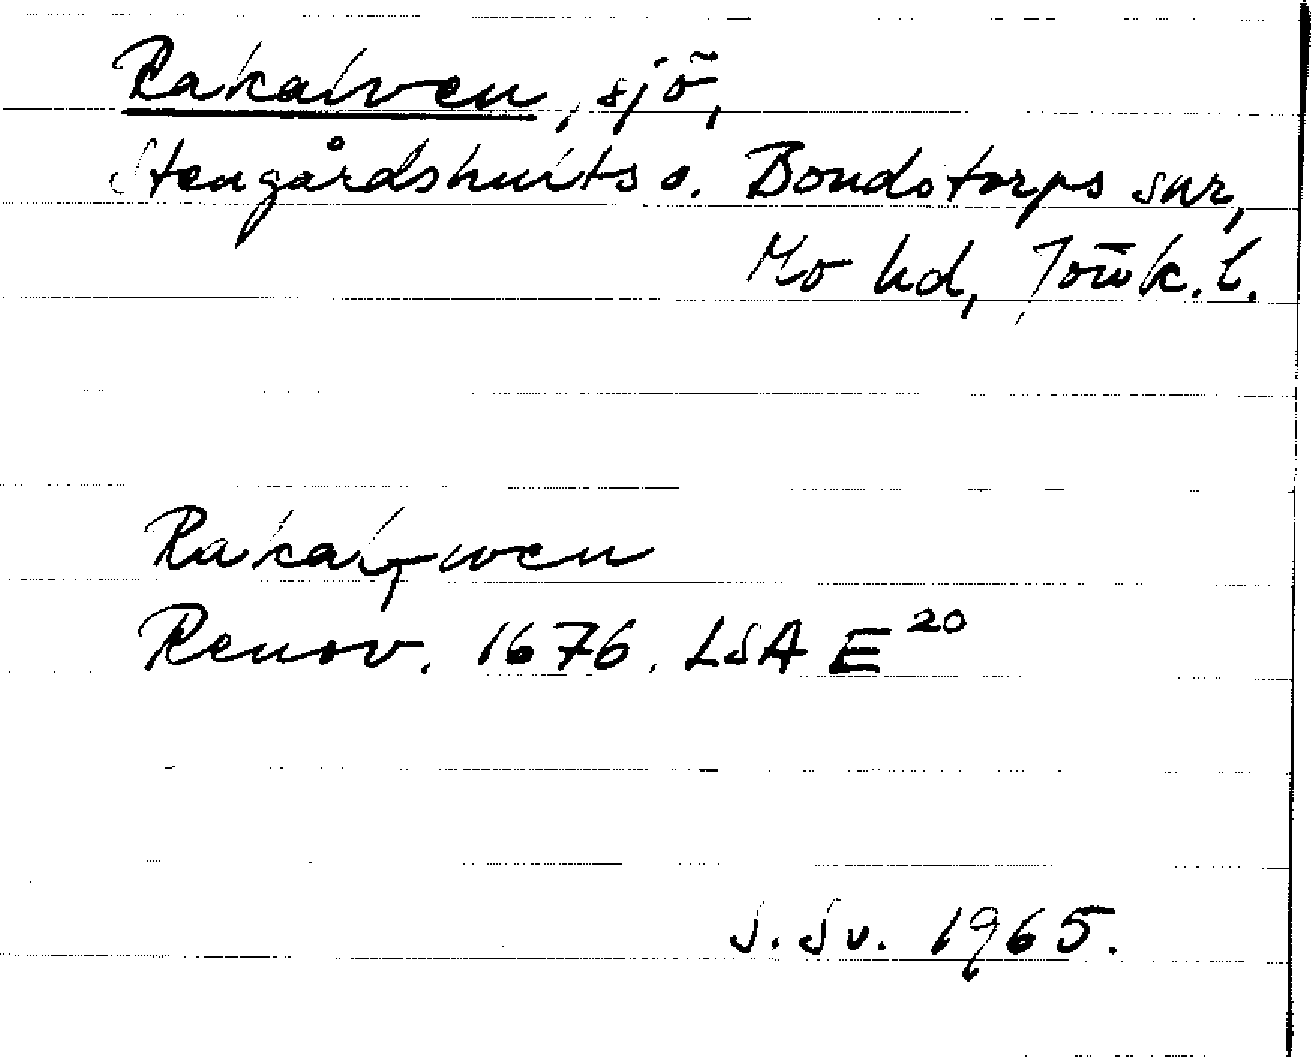 Rakalven, sjö,
Stengårdshults o. Bondstorps snr,
Mo hd, Jönk. l.
Rakalfwen
Renov. 1676. LSA E 20
S. Sv. 1965.